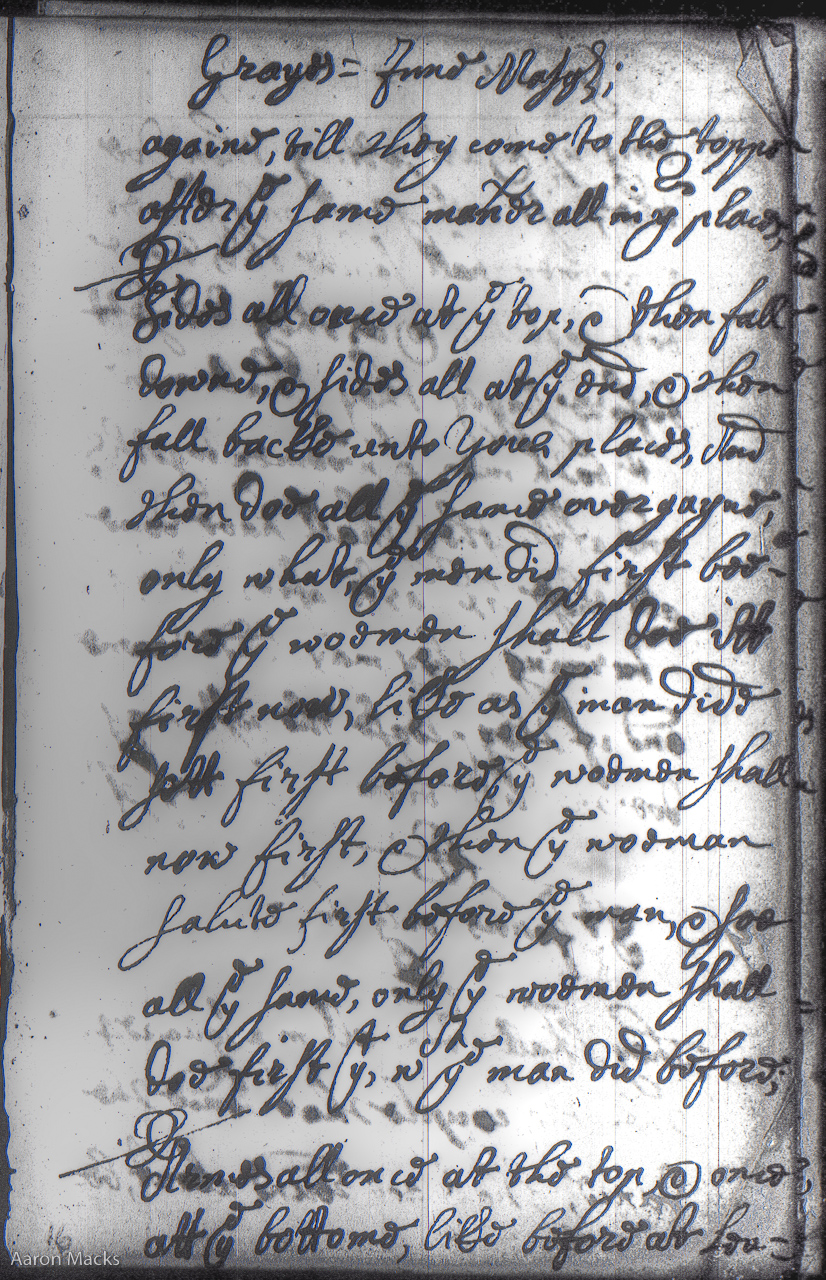 Grayes= Inne Maske;
againe, till they come to the toppe
after yᵉ same maner all in yᵉ places,
Sides all once at yᵉ top, & then fall
downe, & sides all at yᵉ end, & then
fall backe unto your places, And
then doe all yᵉ same over gayne,
only what, yᵉ men did first bee-
fore yᵉ woemen shall doe itt
first now, like as yᵉ man didd
sett first before, yᵉ woemen shall
now first, & then yᵉ woeman
salute first before yᵉ man, & soe
all yᵉ same, only yᵉ woemen shall
doe first yᵗ, wᶜʰ yᵉ man did before;
Armes all once at the top, & once,
att yᵉ bottome, like before at
Aaron Macks